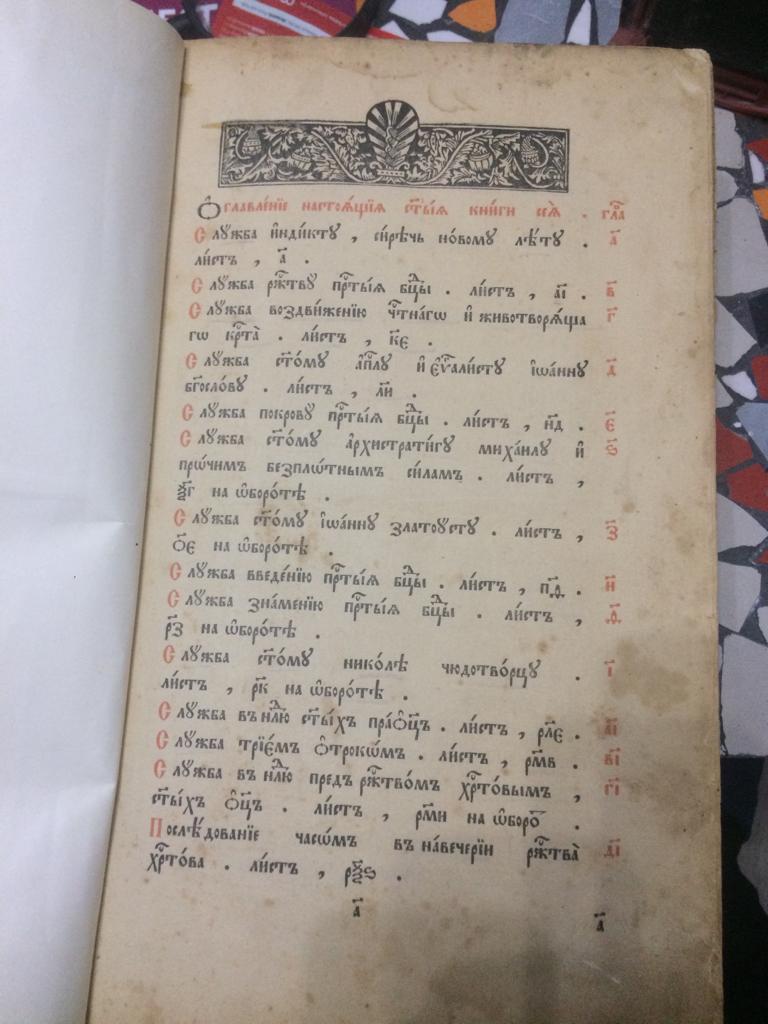 Ѻ҆главле́нїе настоѧ́щїѧ ст҃ы́ѧ кни́ги сеѧ̀ . гл҃а
Слꙋ́жба и҆нді́ктꙋ , си́рѣчь но́вомꙋ лѣ́тꙋ . а҃
ли́стъ , а҃ .
Слꙋ́жба ржⷭ҇твꙋ̀ прⷭ҇ты́ѧ бцⷣы . ли́стъ , а҃і . в҃
Слꙋ́жба воздви́женїю чⷭ҇тна́гѡ и҆ животворѧ́ща г҃
гѡ крⷭ҇та̀ . ли́стъ , к҃е .
Слꙋ́жба ст҃о́мꙋ а҆пⷭ҇лꙋ и҆ є҆ѵⷢ҇алі́стꙋ і҆ѡа́ннꙋ д҃
бг҃осло́вꙋ . ли́стъ , л҃и .
Слꙋ́жба покро́вꙋ прⷭ҇ты́ѧ бцⷣы . ли́стъ , н҃д . є҃
Слꙋ́жба ст҃о́мꙋ а҆рхистрати́гꙋ михаи́лꙋ и҆ ѕ҃
прѡ́чимъ безплѡ́тнымъ си́ламъ . ли́стъ ,
ѯ҃г на ѡ҆боро́тѣ .
Слꙋ́жба ст҃о́мꙋ і҆ѡа́ннꙋ златоꙋ́стꙋ . ли́стъ , з҃
ѻ҃е на ѡ҆боро́тѣ .
Слꙋ́жба введе́нїю прⷭ҇ты́ѧ бцⷣы . ли́стъ , п҃ѳ . и҃
Слꙋ́жба зна́менїю прⷭ҇ты́ѧ бцⷣы . ли́стъ , ѳ҃
р҃з на ѡ҆боро́тѣ .
Слꙋ́жба ст҃о́мꙋ нико́лѣ чюдотво́рцꙋ . і҃
ли́стъ , р҃к на ѡ҆боро́тѣ .
Слꙋ́жба въ нⷣлю ст҃ы́хъ праѻ҆ц҃ъ . ли́стъ , рл҃е . а҃і
Слꙋ́жба трїе́мъ ѻ҆трокѡ́мъ . ли́стъ , рм҃в . в҃і
Слꙋ́жба въ нⷣлю предъ ржⷭ҇тво́мъ хрⷭ҇то́вымъ , г҃і
ст҃ы́хъ ѻ҆ц҃ъ . ли́стъ , рм҃и на ѡ҆боро́ .
Послѣ́дованїе часѡ́мъ въ наве́черїи ржⷭ҇тва̀ д҃і
хрⷭ҇то́ва . ли́стъ , рѯ҃ѕ .
а҃
а҃